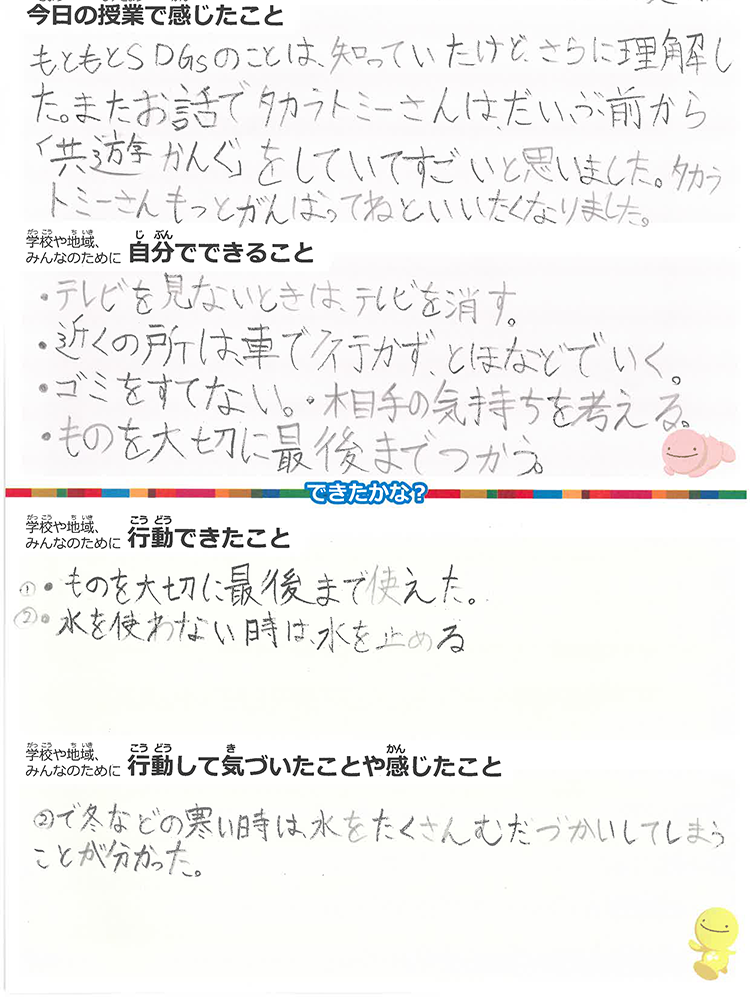 今日の授業で感じたこと
もともとSDGsのことは、知っていたけど、さらに理解し
た。またお話でタカラトミーさんは、だいぶ前から
「共遊がんぐ」をしていてすごいと思いました。タカラ
トミーさんもっとがんばってねといいたくなりました。
がっこう ちいき
学校や地域、
みんなのために
じ ぶん
自分でできること
・テレビを見ないときは、テレビを消す。
・近くの所は、車で行かず、とほなどでいく。
・ゴミをすてない。・相手の気持ちを考える。
・ものを大切に最後までつかう。
できたかな?
がっこう ちいき
学校や地域、
みんなのために
こう どう
行動できたこと
①・ものを大切に最後まで使えた。
②・水を使わない時は、水を止める
がっこう ちいき
学校や地域、
みんなのために
こう どう き かん
行動して気づいたことや感じたこと
②で冬などの寒い時は、水をたくさんむだづかいしてしまう
ことが分かった。